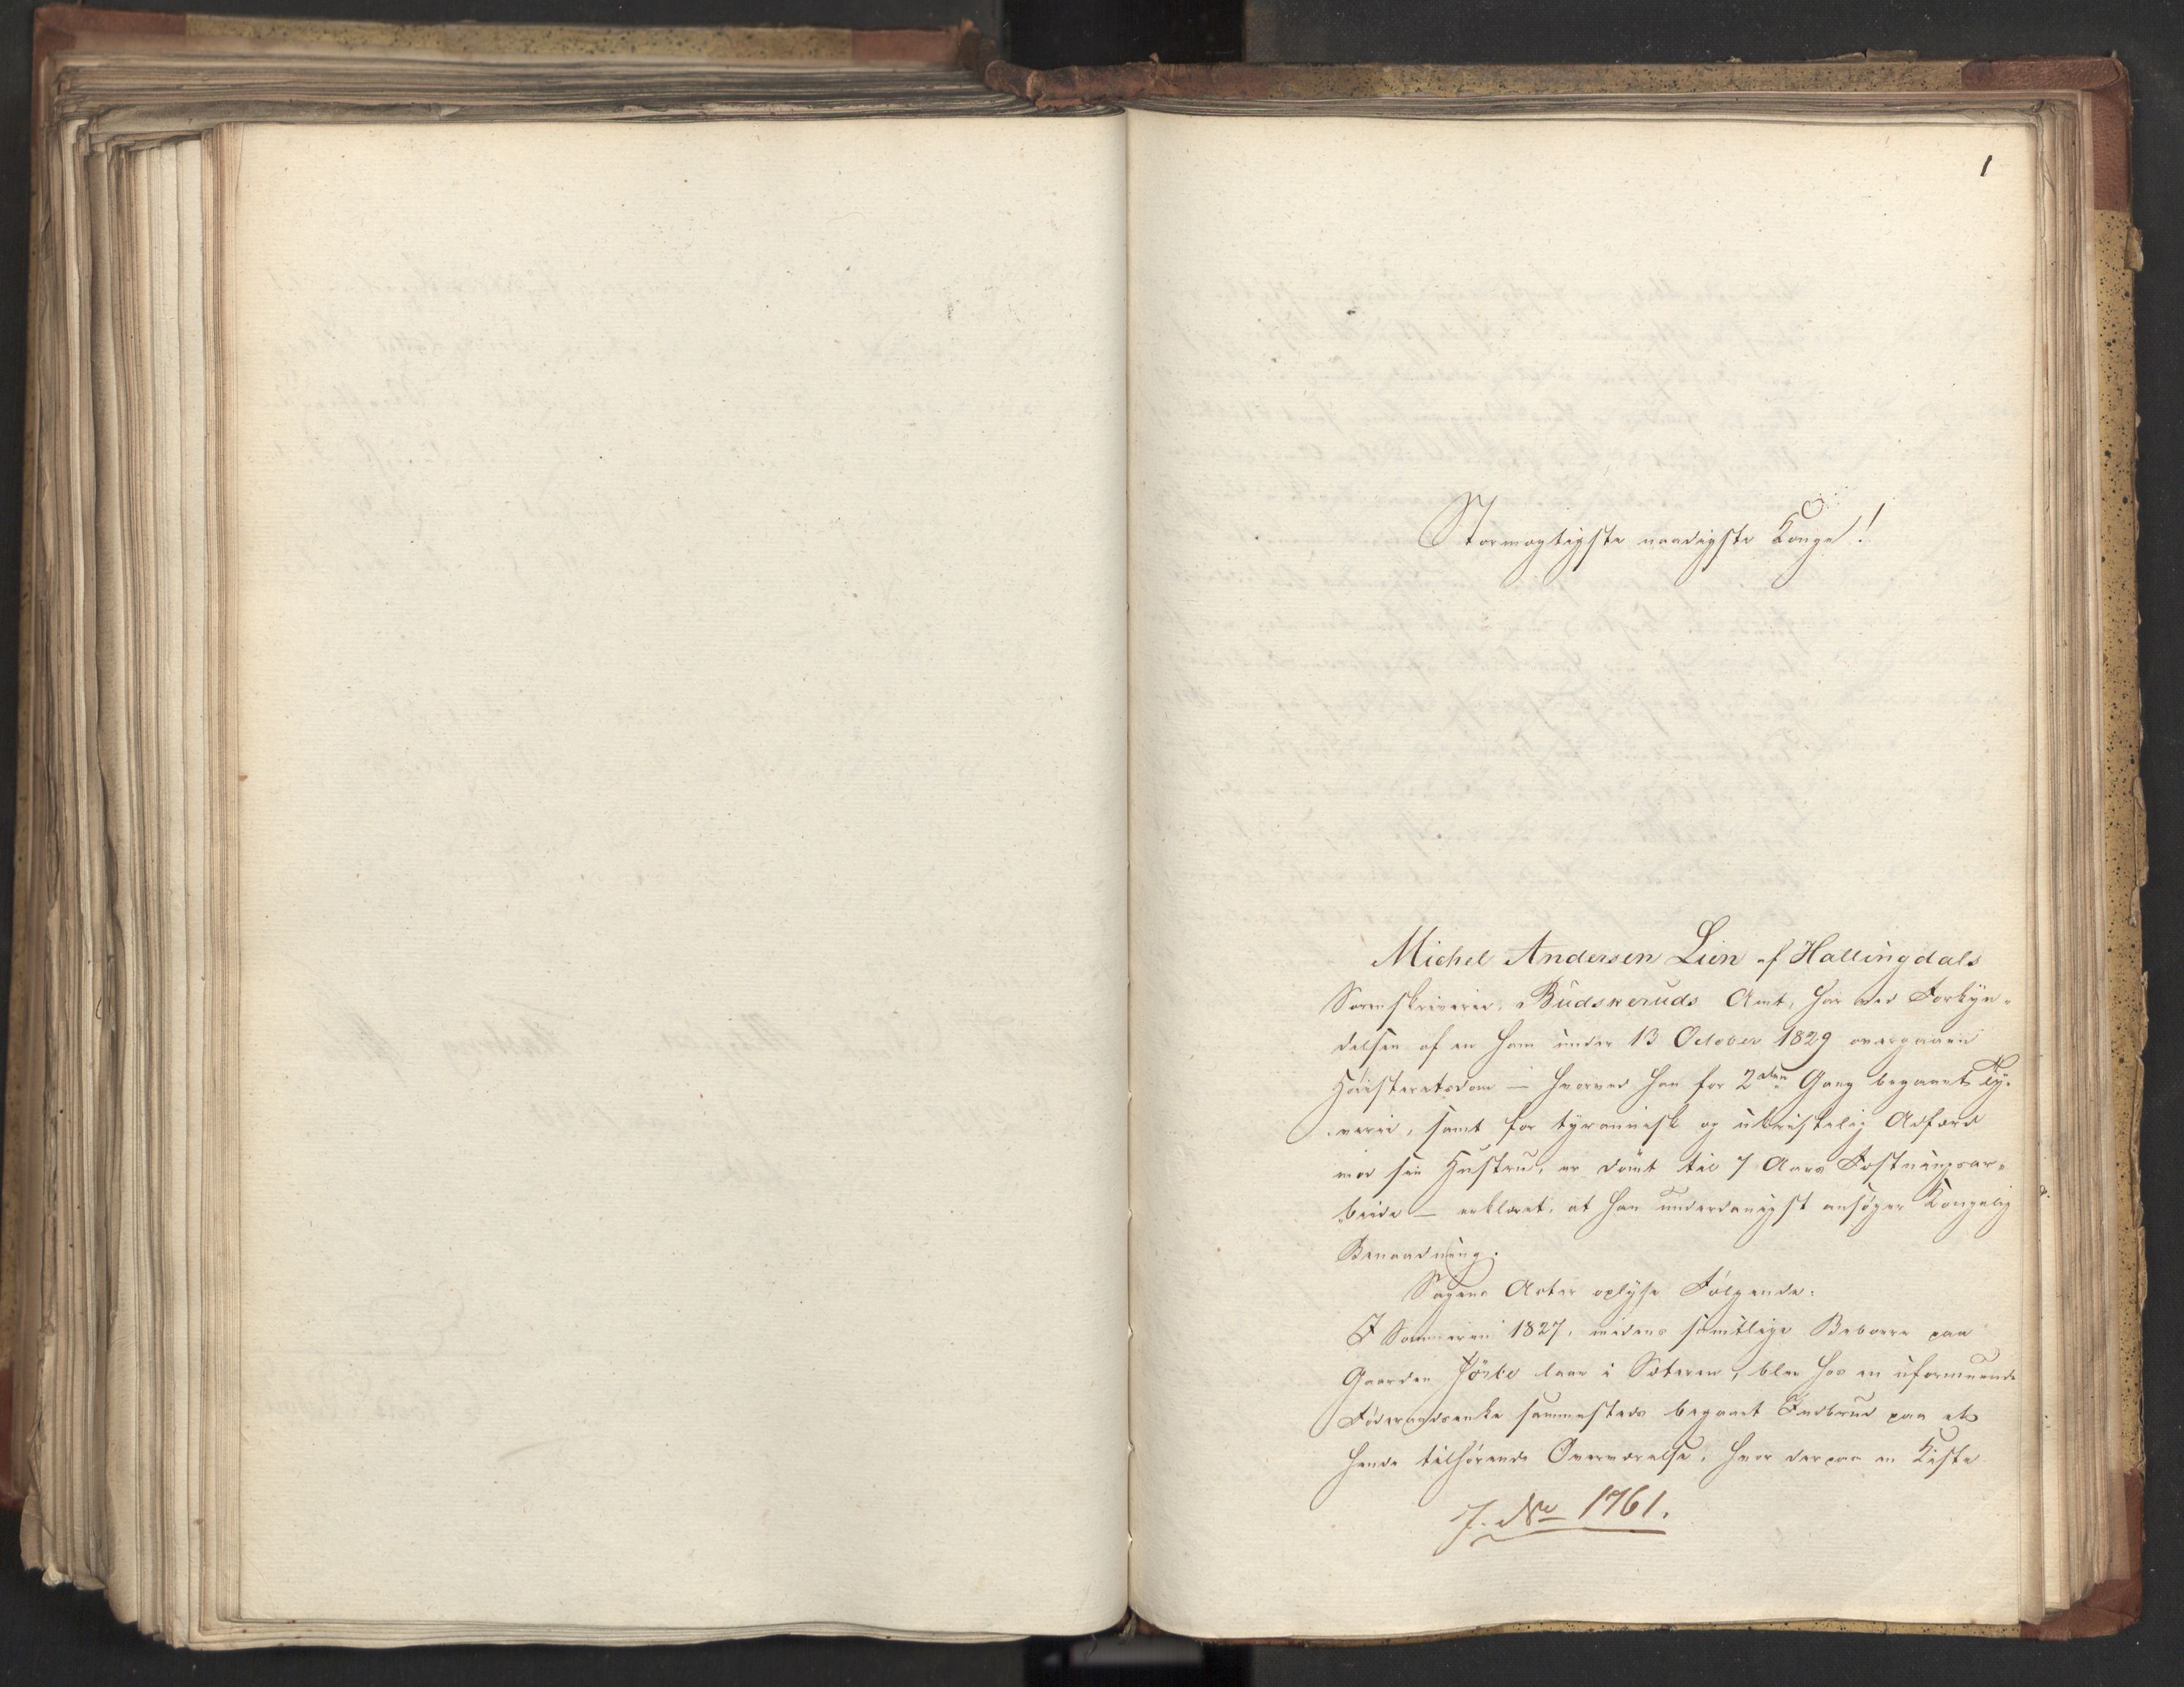 1
Stormægtigste naadigste Konge!
Michel Andersen Lien af Hallingdals
Sorenskriverie, Budskeruds Amt, har ved Forkyn-
delsen af en ham under 13 October 1829 overgaaen
Høiesteretsdom – hvorved han for 2den Gang begaaet Ty-
verie, samt for tyrannisk og ukristelig Adfærd
mod sin Hustru, er dømt til 7 Aars Fæstningsar-
beide – erklæret, at han underdanigst ansøger Kongelig
Benaadning.
Sagens Acter oplyse Følgende:
I Sommeren 1827, medens samtlige Beboere paa
Gaarden laae i Sæteren, blev hos en uformuende
Føderaadsenke sammesteds begaaet Indbrud paa et
hende tilhørende Overværelse, hvor derpaa en Kiste
J. No 1761.